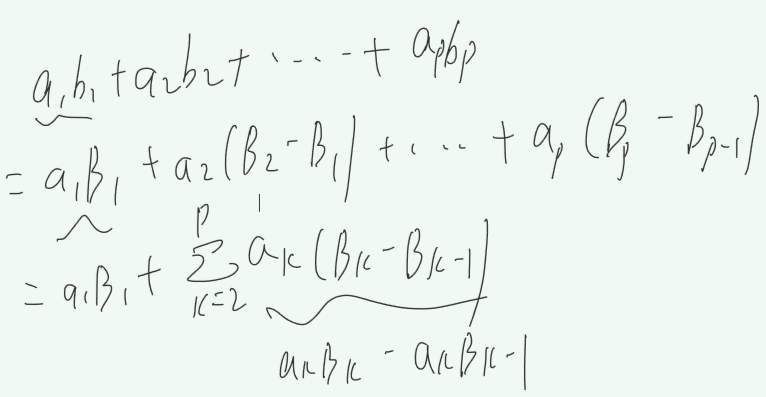 a₁b₁ + a₂b₂ + ····· + aₚbₚ
= a₁B₁ + a₂(B₂ - B₁) + ···· + aₚ(Bₚ - Bₚ₋₁)
= a₁B₁ + ∑ₖ₌₂ᵖ aₖ(Bₖ - Bₖ₋₁)
aₖBₖ - aₖBₖ₋₁